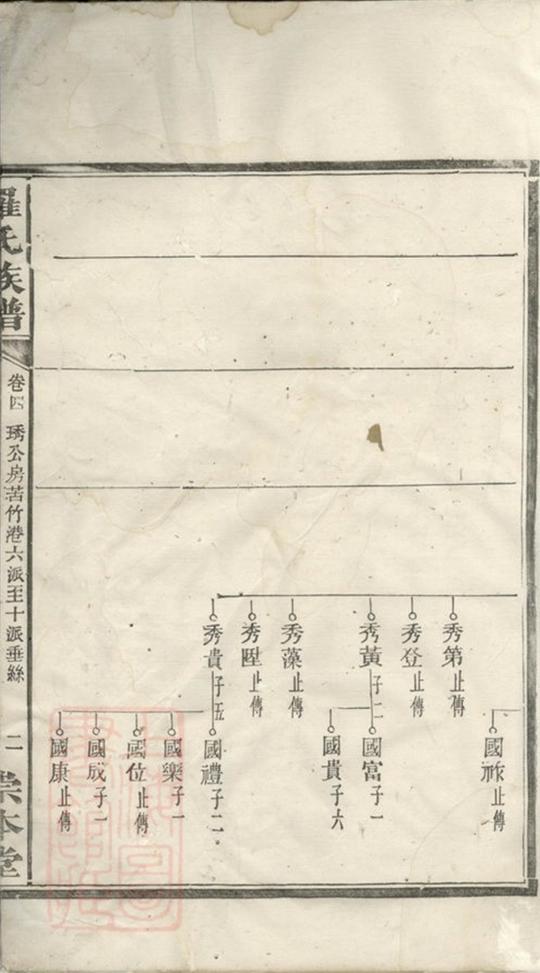 秀第止傳
秀登止傳
秀黃子二
秀藻止傳
秀陞止傳
秀貴子五
國祚止傳
國富子一
國貴子六
國禮子二
國樂子一
國位止傳
國成子一
國康止傳
羅氏族譜
卷四 琇公房苦竹港六派至十派垂絲
二
崇本堂